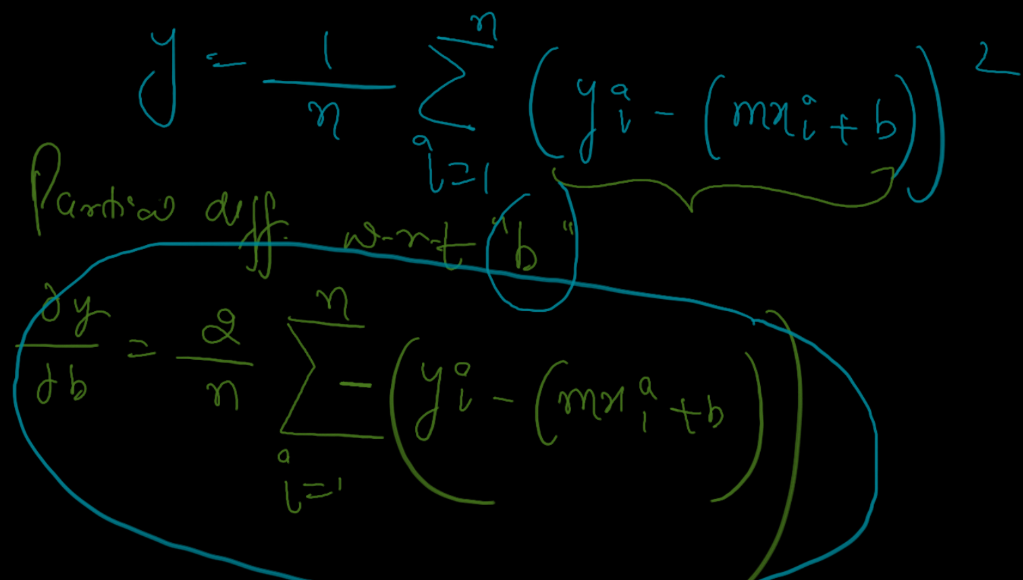 y = 1/n Σ_{i=1}^{n} (y_i - (mx_i + b))^2
Partial diff. w-r-t "b"
∂y/∂b = 2/n Σ_{i=1}^{n} -(y_i - (mx_i + b))